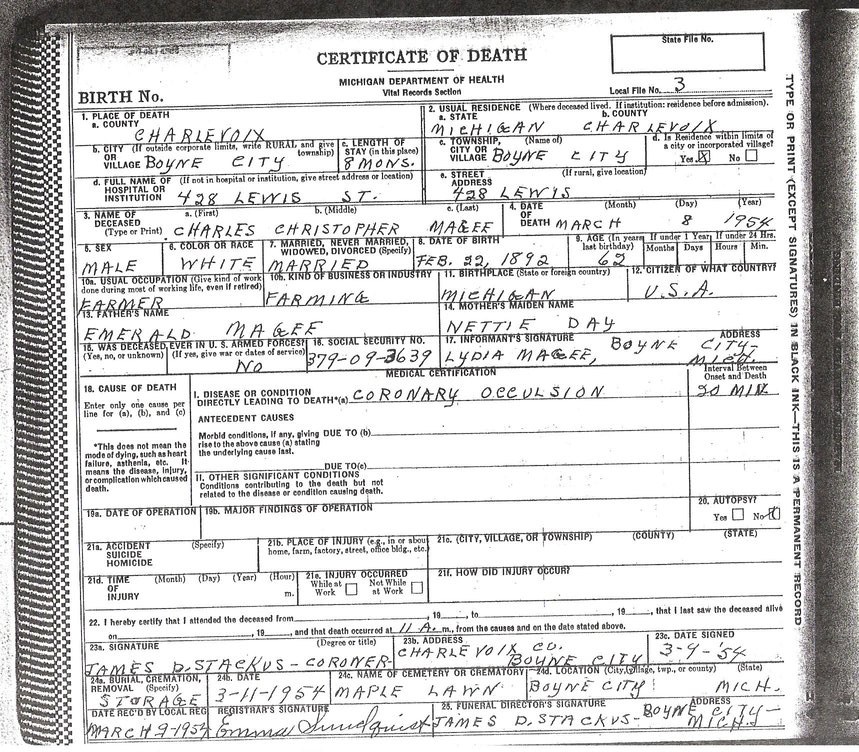 State File No.
CERTIFICATE OF DEATH
MICHIGAN DEPARTMENT OF HEALTH
Vital Records Section
Local File No. 3
BIRTH No.
1. PLACE OF DEATH
a. COUNTY
CHARLEVOIX
2. USUAL RESIDENCE (Where deceased lived. If institution: residence before admission).
a. STATE b. COUNTY
MICHIGAN CHARLEVOIX
b. CITY (If outside corporate limits, write RURAL and give township)
OR
VILLAGE BOYNE CITY
c. LENGTH OF
STAY (in this place)
8 MONS.
c. TOWNSHIP, (Name of)
CITY OR
VILLAGE BOYNE CITY
d. Is Residence within limits of
a city or incorporated village?
Yes ☒ No ☐
d. FULL NAME OF (If not in hospital or institution, give street address or location)
HOSPITAL OR
INSTITUTION 428 LEWIS ST.
e. STREET (If rural, give location)
ADDRESS
428 LEWIS
3. NAME OF
DECEASED
(Type or Print)
a. (First) b. (Middle) c. (Last)
CHARLES CHRISTOPHER MAGEE
4. DATE (Month) (Day) (Year)
OF
DEATH MARCH 8 1954
5. SEX
MALE
6. COLOR OR RACE
WHITE
7. MARRIED, NEVER MARRIED,
WIDOWED, DIVORCED (Specify)
MARRIED
8. DATE OF BIRTH
FEB. 22, 1892
9. AGE (In years
last birthday)
62
If under 1 Year
Months Days
If under 24 Hrs.
Hours Min.
10a. USUAL OCCUPATION (Give kind of work
done during most of working life, even if retired)
FARMER
10b. KIND OF BUSINESS OR INDUSTRY
FARMING
11. BIRTHPLACE (State or foreign country)
MICHIGAN
12. CITIZEN OF WHAT COUNTRY?
U.S.A.
13. FATHER'S NAME
EMERALD MAGEE
14. MOTHER'S MAIDEN NAME
NETTIE DAY
15. WAS DECEASED EVER IN U. S. ARMED FORCES?
(Yes, no, or unknown) (If yes, give war or dates of service)
NO
16. SOCIAL SECURITY NO.
379-09-3639
17. INFORMANT'S SIGNATURE ADDRESS
LYDIA MAGEE, BOYNE CITY-
MICH.
MEDICAL CERTIFICATION
Interval Between
Onset and Death
18. CAUSE OF DEATH
Enter only one cause per
line for (a), (b), and (c)
*This does not mean the
mode of dying, such as heart
failure, asthenia, etc. It
means the disease, injury,
or complication which caused
death.
I. DISEASE OR CONDITION
DIRECTLY LEADING TO DEATH*(a) CORONARY OCCULSION
20 MIN.
ANTECEDENT CAUSES
Morbid conditions, if any, giving DUE TO (b)
rise to the above cause (a) stating
the underlying cause last.
DUE TO(c)
II. OTHER SIGNIFICANT CONDITIONS
Conditions contributing to the death but not
related to the disease or condition causing death.
19a. DATE OF OPERATION
19b. MAJOR FINDINGS OF OPERATION
20. AUTOPSY?
Yes ☐ No ☒
21a. ACCIDENT (Specify)
SUICIDE
HOMICIDE
21b. PLACE OF INJURY (e.g., in or about
home, farm, factory, street, office bldg., etc.)
21c. (CITY, VILLAGE, OR TOWNSHIP) (COUNTY) (STATE)
21d. TIME (Month) (Day) (Year) (Hour)
OF
INJURY m.
21e. INJURY OCCURRED
While at Work ☐ Not While at Work ☐
21f. HOW DID INJURY OCCUR?
22. I hereby certify that I attended the deceased from , 19 , to , 19 , that I last saw the deceased alive
on , 19 , and that death occurred at 11 A. m., from the causes and on the date stated above.
23a. SIGNATURE (Degree or title)
JAMES D. STACKUS - CORONER-
23b. ADDRESS
CHARLEVOIX CO.
BOYNE CITY
23c. DATE SIGNED
3-9-54
24a. BURIAL, CREMATION,
REMOVAL (Specify)
STORAGE
24b. DATE
3-11-1954
24c. NAME OF CEMETERY OR CREMATORY
MAPLE LAWN
24d. LOCATION (City, village, twp., or county) (State)
BOYNE CITY MICH.
DATE REC'D BY LOCAL REG.
MARCH 9-1954
REGISTRAR'S SIGNATURE
Emma Sundquist
25. FUNERAL DIRECTOR'S SIGNATURE ADDRESS
JAMES D. STACKUS - BOYNE CITY-
MICH.
TYPE OR PRINT (EXCEPT SIGNATURES) IN BLACK INK—THIS IS A PERMANENT RECORD